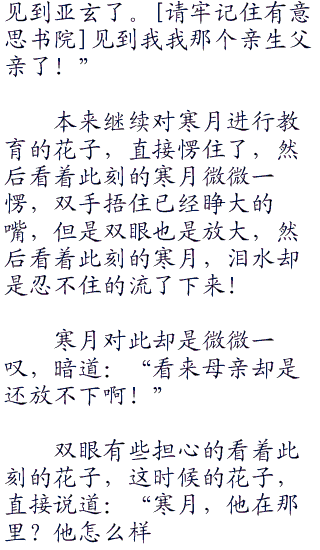 见到亚玄了。[请牢记住有意
思书院]见到我我那个亲生父
亲了！”
本来继续对寒月进行教
育的花子，直接愣住了，然
后看着此刻的寒月微微一
愣，双手捂住已经睁大的
嘴，但是双眼也是放大，然
后看着此刻的寒月，泪水却
是忍不住的流了下来！
寒月对此却是微微一
叹，暗道：“看来母亲却是
还放不下啊！”
双眼有些担心的看着此
刻的花子，这时候的花子，
直接说道：“寒月，他在那
里？他怎么样